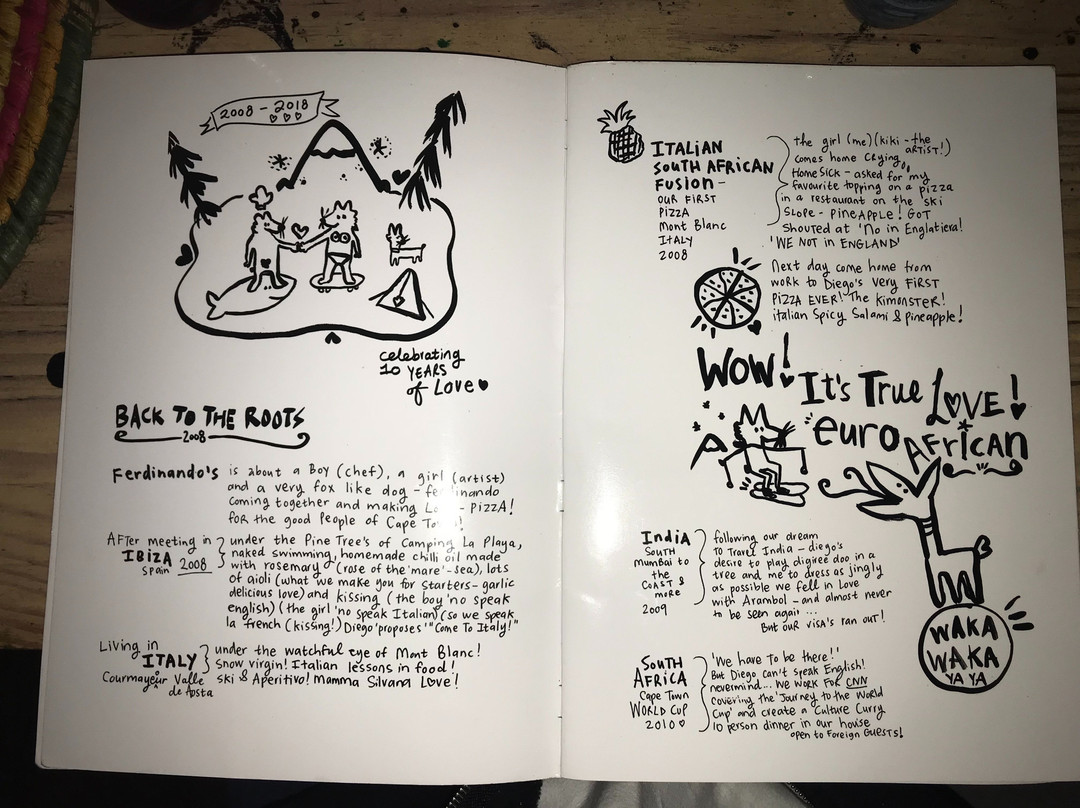 2008 - 2018
celebrating
10 YEARS
of Love
BACK TO THE ROOTS
2008
Ferdinando's is about a Boy (chef), a girl (artist)
and a very fox like dog - fe inando
coming together and making Lo - PIZZA!
for the good People of Cape To !
AFTer meeting in
IBIZA
Spain 2008
under the Pine Tree's of Camping La Playa,
naked swimming, homemade chilli oil made
with rosemary (rose of the 'mare' - sea), lots
of aioli (what we make you for starters - garlic
delicious love) and kissing (the boy 'no speak
english) (the girl 'no speak Italian) (so we speak
la french (kissing!) Diego 'proposes' "Come To Italy!"
Living in
ITALY
Courmayeur Valle
de Aosta
under the watchful eye of Mont Blanc!
Snow virgin! Italian lessons in food!
Ski & Aperitivo! Mamma Silvana Love!
ITALIAN
SOUTH AFRICAN
FUSION -
OUR FIRST
PIZZA
Mont Blanc
ITALY
2008
the girl (me) (kiki - the
ARTIST!)
comes home crying,
Home SICK - asked for my
favourite topping on a pizza
in a restaurant on the ski
SLOPE - PINEAPPLE! GOT
Shouted at 'No in Englatiera!
'WE NOT in ENGLAND'
Next day come home from
work to Diego's very FIRST
PIZZA EVER! The KIMONSTER!
italian Spicy Salami & pineapple!
WOW!
It's True LOVE!
'euro AFRICAN
India
SOUTH
Mumbai to
the
COAST &
more
2009
following our dream
TO Travel India - diego's
desire to play digiree doo in a
tree and me to dress as jingly
as possible we fell in Love
with Arambol - and almost never
to be seen again ...
But our visa's ran out!
SOUTH
AFRICA
Cape Town
WORLD CUP
2010
'We have to be there!'
But Diego can't speak English!
nevermind... we work FOR CNN
covering the 'Journey to the World
Cup' and create a 'Culture Curry
10 person dinner in our house
open to Foreign GUESTS!
WAKA
WAKA
YA YA